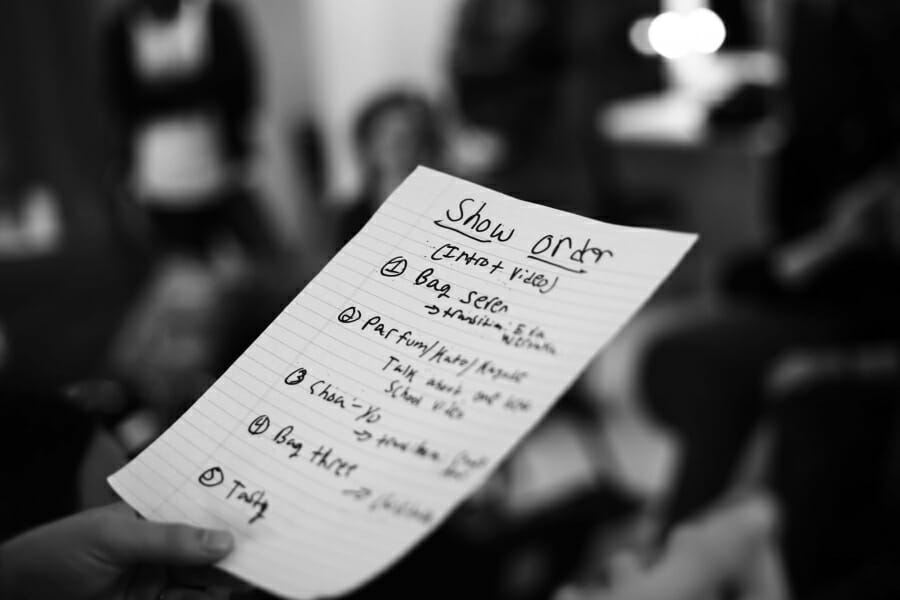 Show order
(Intro + Video)
① Bag seven
→ transition:
② Parfum/Kato/
Talk about one
School video
③ Show-Yo
→ transition:
④ Bag three
→
⑤ Tasty